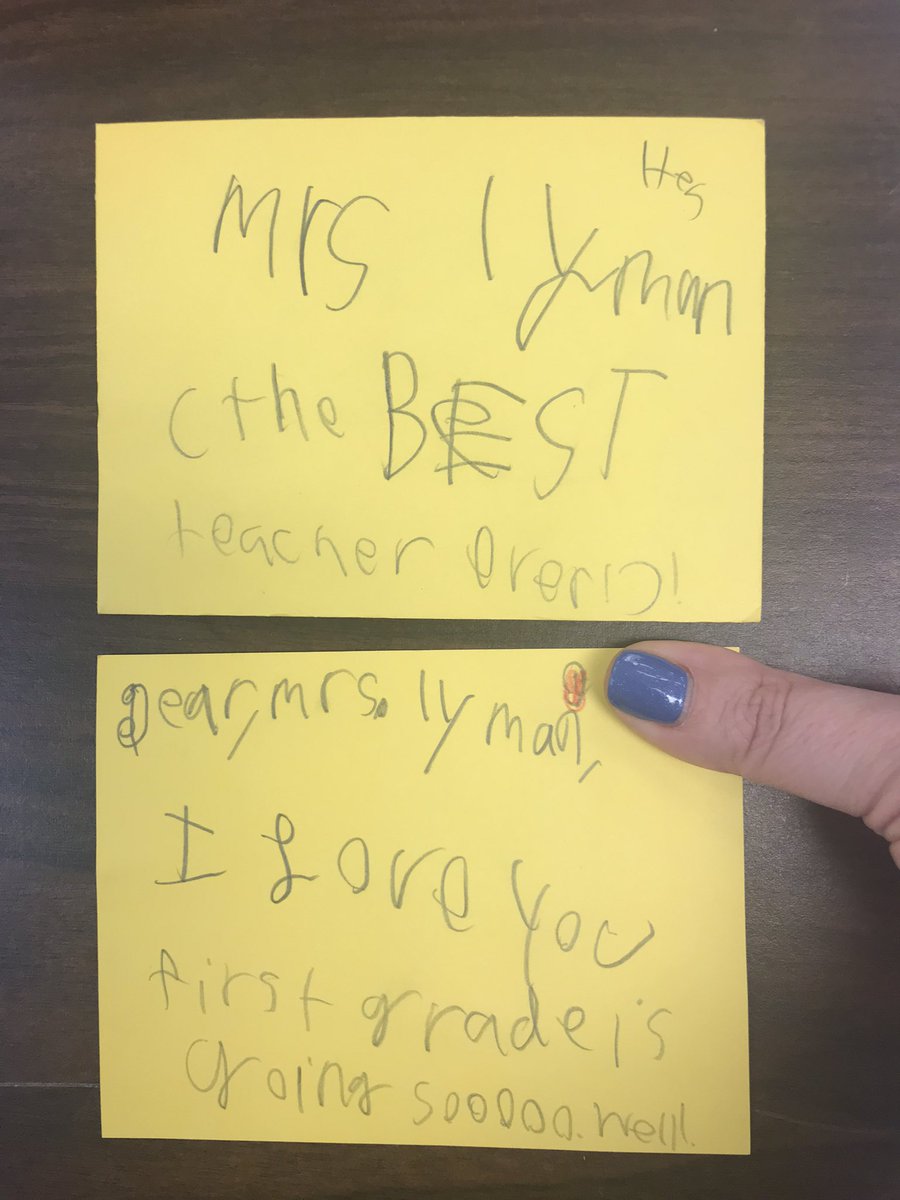 Hes
Mrs lyman
(the BEST
teacher ever!)!
Dear, mrs. lyman,
I Love you
first grade is
going sooooo. well!.